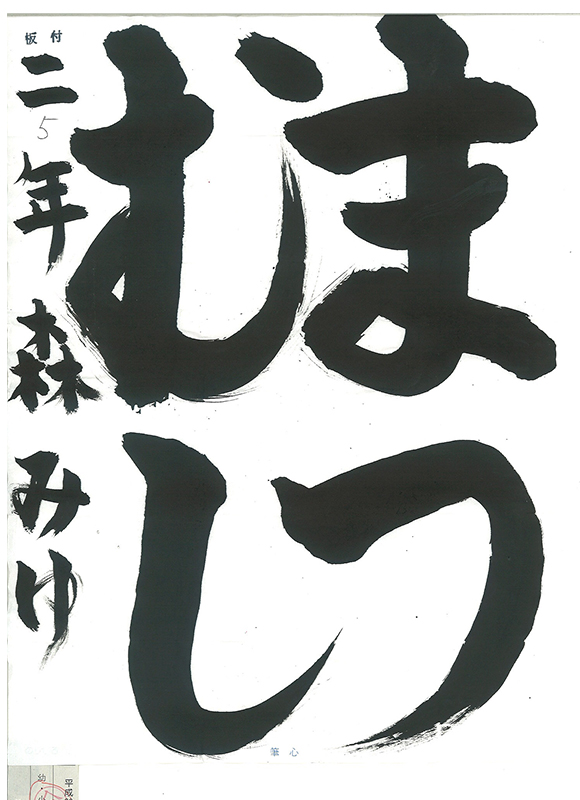 まつ
むし
板付
二年森みゆ
5
筆心
平成